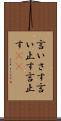 言いさす言
い止す言止
す